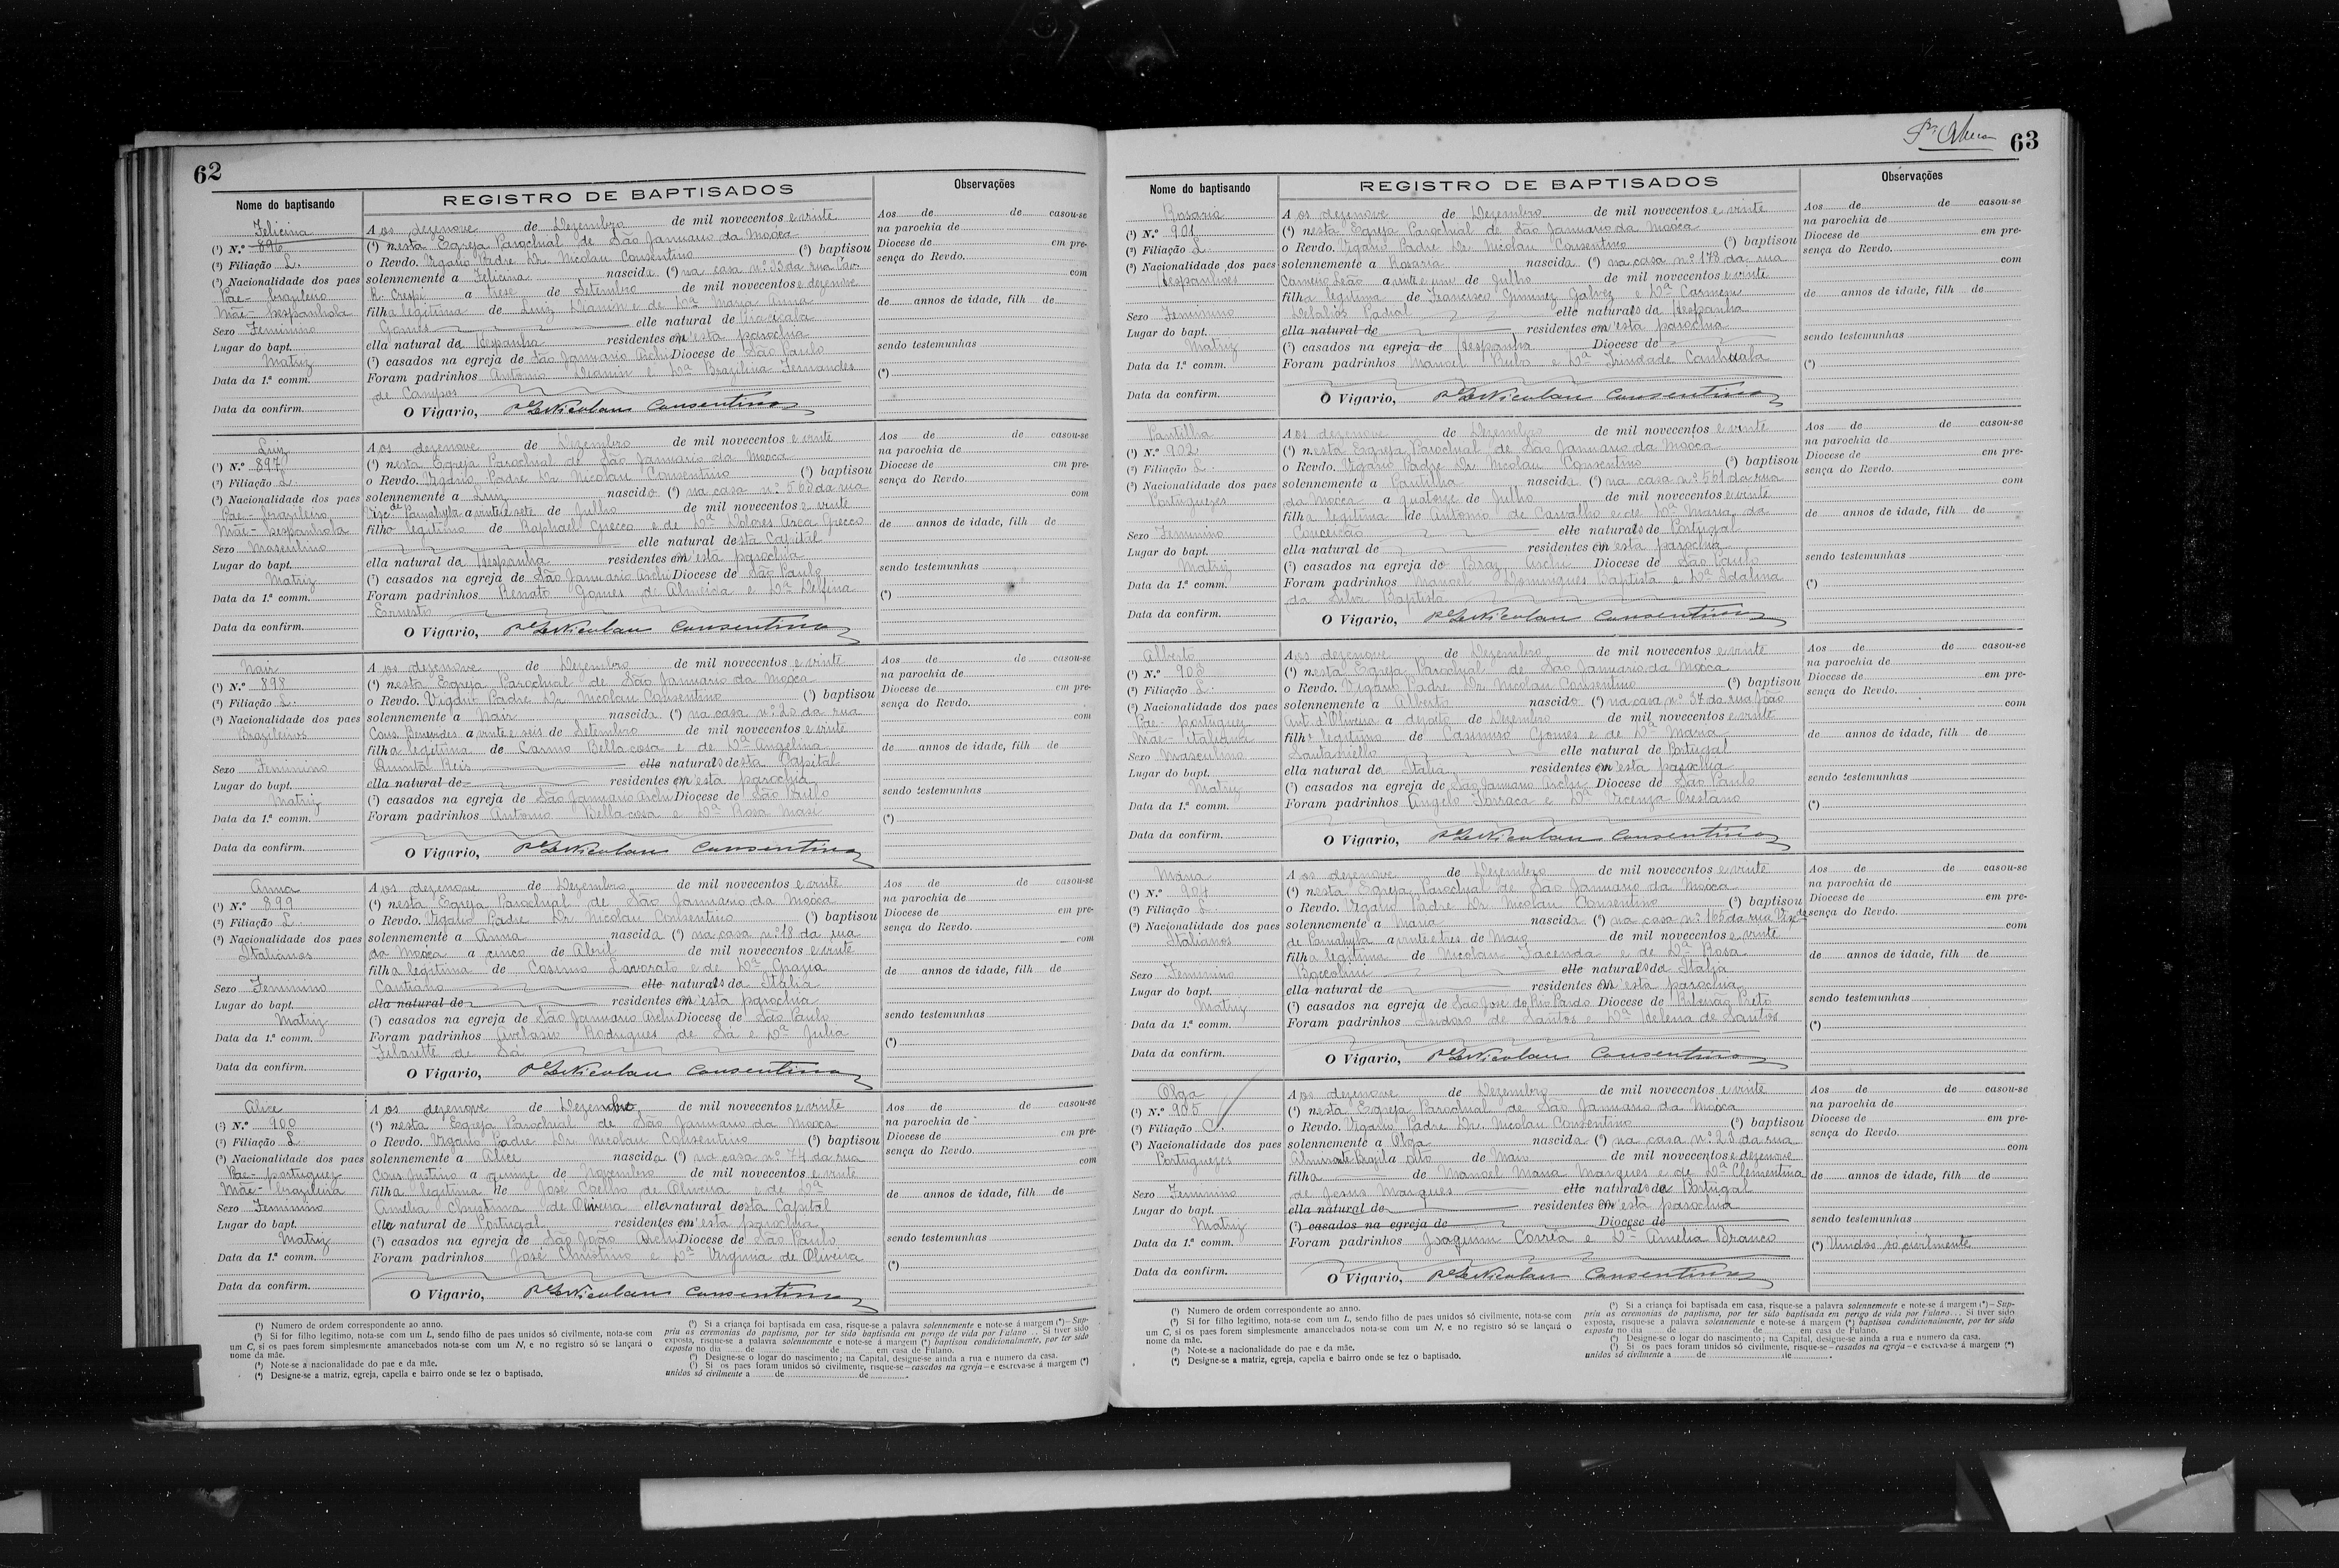 62
Nome do baptisando
REGISTRO DE BAPTISADOS
Observações
Felicina
(¹) N.º 896
(²) Filiação L.
(³) Nacionalidade dos paes
Pae - brazileiro
Mãe - hespanhola
Sexo Feminino
Lugar do bapt.
Matriz
Data da 1.ª comm.
Data da confirm.
Aos dezenove de Dezembro de mil novecentos e vinte
(⁴) nesta Egreja Parochial de São Januario da Moóca
o Revdo. Vigario Padre Dr. Nicolau Consentino (⁵) baptisou
solennemente a Felicina nascida (⁶) na casa n.º 33 da rua Cav.
R. Crespi a trese de Setembro de mil novecentos e dezenove
filha legitima de Luiz e de Dª Maria Anna
Gomes elle natural de Piracicaba
ella natural da Hespanha residentes n'esta parochia
(⁷) casados na egreja de São Januario Archi Diocese de São Paulo
Foram padrinhos Antonio e Dª Brazilina Fernandes
de Campos
O Vigario, Pe Dr Nicolau Consentino
Aos de de casou-se
na parochia de
Diocese de em pre-
sença do Revdo.
com
de annos de idade, filh de
sendo testemunhas
(*)
Luiz
(¹) N.º 897
(²) Filiação L.
(³) Nacionalidade dos paes
Pae - brazileiro
Mãe - hespanhola
Sexo Masculino
Lugar do bapt.
Matriz
Data da 1.ª comm.
Data da confirm.
Aos dezenove de Dezembro de mil novecentos e vinte
(⁴) nesta Egreja Parochial de São Januario da Moóca
o Revdo. Vigario Padre Dr Nicolau Consentino (⁵) baptisou
solennemente a Luiz nascido (⁶) na casa n.º 568 da rua
Visc. de Parnahyba a vinte e sete de Julho de mil novecentos e vinte
filho legitimo de Raphael Grecco e de Dª Dolores Arca Grecco
elle natural desta Capital
ella natural da Hespanha residentes n'esta parochia
(⁷) casados na egreja de São Januario Archi Diocese de São Paulo
Foram padrinhos Renato Gomes de Almeida e Dª Delfina
Ernesto
O Vigario, Pe Dr Nicolau Consentino
Aos de de casou-se
na parochia de
Diocese de em pre-
sença do Revdo.
com
de annos de idade, filh de
sendo testemunhas
(*)
Nair
(¹) N.º 898
(²) Filiação L.
(³) Nacionalidade dos paes
Brazileiros
Sexo Feminino
Lugar do bapt.
Matriz
Data da 1.ª comm.
Data da confirm.
Aos dezenove de Dezembro de mil novecentos e vinte
(⁴) nesta Egreja Parochial de São Januario da Moóca
o Revdo. Vigario Padre Dr Nicolau Consentino (⁵) baptisou
solennemente a Nair nascida (⁶) na casa n.º 20 da rua
Cons. Benevides a vinte e seis de Setembro de mil novecentos e vinte
filha legitima de Carmo Bellacosa e de Dª Angelina
Quinta Reis elle naturals desta Capital
ella natural de residentes n'esta parochia
(⁷) casados na egreja de São Januario Archi Diocese de São Paulo
Foram padrinhos Antonio Bellacosa e Dª Rosa Masi
O Vigario, Pe Dr Nicolau Consentino
Aos de de casou-se
na parochia de
Diocese de em pre-
sença do Revdo.
com
de annos de idade, filh de
sendo testemunhas
(*)
Anna
(¹) N.º 899
(²) Filiação L.
(³) Nacionalidade dos paes
Italianos
Sexo Feminino
Lugar do bapt.
Matriz
Data da 1.ª comm.
Data da confirm.
Aos dezenove de Dezembro de mil novecentos e vinte
(⁴) nesta Egreja Parochial de São Januario da Moóca
o Revdo. Vigario Padre Dr Nicolau Consentino (⁵) baptisou
solennemente a Anna nascida (⁶) na casa n.º 18 da rua
da Moóca a cinco de Abril de mil novecentos e vinte
filha legitima de Cosimo Lavorato e de Dª Grazia
Cantiano elle naturals da Italia
ella natural de residentes n'esta parochia
(⁷) casados na egreja de São Januario Archi Diocese de São Paulo
Foram padrinhos Avelasio Rodrigues de Sá e Dª Julia
Filarette de Sá
O Vigario, Pe Dr Nicolau Consentino
Aos de de casou-se
na parochia de
Diocese de em pre-
sença do Revdo.
com
de annos de idade, filh de
sendo testemunhas
(*)
Alice
(¹) N.º 900
(²) Filiação L
(³) Nacionalidade dos paes
Pae - portuguez
Mãe - brazileira
Sexo Feminino
Lugar do bapt.
Matriz
Data da 1.ª comm.
Data da confirm.
Aos dezenove de Dezembro de mil novecentos e vinte
(⁴) nesta Egreja Parochial de São Januario da Moóca
o Revdo. Vigario Padre Dr. Nicolau Consentino (⁵) baptisou
solennemente a Alice nascida (⁶) na casa n.º 74 da rua
Cons. Justino a quinze de Novembro de mil novecentos e vinte
filha legitima de José Coelho de Oliveira e de Dª
Amelia Christina de Oliveira ella natural desta Capital
elle natural de Portugal residentes n'esta parochia
(⁷) casados na egreja de São João Archi Diocese de São Paulo
Foram padrinhos José Christino e Dª Virginia de Oliveira
O Vigario, Pe Dr Nicolau Consentino
Aos de de casou-se
na parochia de
Diocese de em pre-
sença do Revdo.
com
de annos de idade, filh de
sendo testemunhas
(*)
(¹) Numero de ordem correspondente ao anno.
(²) Si for filho legitimo, nota-se com um L, sendo filho de paes unidos só civilmente, nota-se com
um C, si os paes forem simplesmente amancebados nota-se com um N, e no registro só se lançará o
nome da mãe.
(³) Note-se a nacionalidade do pae e da mãe.
(⁴) Designe-se a matriz, egreja, capella e bairro onde se fez o baptisado.
(⁵) Si a criança foi baptisada em casa, risque-se a palavra solennemente e note-se á margem (*)—Sup-
priu as ceremonias do baptismo, por ter sido baptisada em perigo de vida por Fulano... Si tiver sido
exposta, risque-se a palavra solennemente e note-se á margem (*) baptisou condicionalmente, por ter sido
exposto no dia de de em casa de Fulano.
(⁶) Designe-se o logar do nascimento; na Capital, designe-se ainda a rua e numero da casa.
(⁷) Si os paes foram unidos só civilmente, risque-se—casados na egreja—e escreva-se á margem (*)
unidos só civilmente a de de .
63
Nome do baptisando
REGISTRO DE BAPTISADOS
Observações
Rosaria
(¹) N.º 901
(²) Filiação L.
(³) Nacionalidade dos paes
Hespanhoes
Sexo Feminino
Lugar do bapt.
Matriz
Data da 1.ª comm.
Data da confirm.
Aos dezenove de Dezembro de mil novecentos e vinte
(⁴) nesta Egreja Parochial de São Januario da Moóca
o Revdo. Vigario Padre Dr. Nicolau Consentino (⁵) baptisou
solennemente a Rosaria nascida (⁶) na casa n.º 178 da rua
Carneiro Leão a vinte e um de Julho de mil novecentos e vinte
filha legitima de Francisco Gimenez Galvez e Dª Carmem
Padial elle naturals da Hespanha
ella natural de residentes n'esta parochia
(⁷) casados na egreja de Hespanha Diocese de
Foram padrinhos Manoel Rubo e Dª Trindade
O Vigario, Pe Dr Nicolau Consentino
Aos de de casou-se
na parochia de
Diocese de em pre-
sença do Revdo.
com
de annos de idade, filh de
sendo testemunhas
(*)
Pantilha
(¹) N.º 902
(²) Filiação L.
(³) Nacionalidade dos paes
Portuguezes
Sexo Feminino
Lugar do bapt.
Matriz
Data da 1.ª comm.
Data da confirm.
Aos dezenove de Dezembro de mil novecentos e vinte
(⁴) nesta Egreja Parochial de São Januario da Moóca
o Revdo. Vigario Padre Dr Nicolau Consentino (⁵) baptisou
solennemente a Pantilha nascida (⁶) na casa n.º 561 da rua
da Moóca a quatorze de Julho de mil novecentos e vinte
filha legitima de Antonio de Carvalho e de Dª Maria da
Conceição elle naturals de Portugal
ella natural de residentes n'esta parochia
(⁷) casados na egreja do Braz Archi Diocese de São Paulo
Foram padrinhos Manoel Domingues Baptista e Dª Idalina
da Silva Baptista
O Vigario, Pe Dr Nicolau Consentino
Aos de de casou-se
na parochia de
Diocese de em pre-
sença do Revdo.
com
de annos de idade, filh de
sendo testemunhas
(*)
Alberto
(¹) N.º 903
(²) Filiação L.
(³) Nacionalidade dos paes
Pae - portuguez
Mãe - italiana
Sexo Masculino
Lugar do bapt.
Matriz
Data da 1.ª comm.
Data da confirm.
Aos dezenove de Dezembro de mil novecentos e vinte
(⁴) nesta Egreja Parochial de São Januario da Moóca
o Revdo. Vigario Padre Dr Nicolau Consentino (⁵) baptisou
solennemente a Alberto nascido (⁶) na casa n.º 37 da rua João
Ant. d'Oliveira a dezoito de Dezembro de mil novecentos e vinte
filho legitimo de Casimiro Gomes e de Dª Maria
Santaniello elle natural de Portugal
ella natural da Italia residentes n'esta parochia
(⁷) casados na egreja de São Januario Archi Diocese de São Paulo
Foram padrinhos Angelo Torraca e Dª Vicenza Orestano
O Vigario, Pe Dr Nicolau Consentino
Aos de de casou-se
na parochia de
Diocese de em pre-
sença do Revdo.
com
de annos de idade, filh de
sendo testemunhas
(*)
Maria
(¹) N.º 904
(²) Filiação L.
(³) Nacionalidade dos paes
Italianos
Sexo Feminino
Lugar do bapt.
Matriz
Data da 1.ª comm.
Data da confirm.
Aos dezenove de Dezembro de mil novecentos e vinte
(⁴) nesta Egreja Parochial de São Januario da Moóca
o Revdo. Vigario Padre Dr Nicolau Consentino (⁵) baptisou
solennemente a Maria nascida (⁶) na casa n.º 165 da rua Visc.de
de Parnahyba a vinte e tres de Maio de mil novecentos e vinte
filha legitima de Nicolau Facenda e de Dª Rosa
Boccolini elle naturals da Italia
ella natural de residentes n'esta parochia
(⁷) casados na egreja de São José do Rio Pardo Diocese de Ribeirão Preto
Foram padrinhos Isidoro de Santos e Dª Helena de Santos
O Vigario, Pe Dr Nicolau Consentino
Aos de de casou-se
na parochia de
Diocese de em pre-
sença do Revdo.
com
de annos de idade, filh de
sendo testemunhas
(*)
Olga
(¹) N.º 905
(²) Filiação C.
(³) Nacionalidade dos paes
Portuguezes
Sexo Feminino
Lugar do bapt.
Matriz
Data da 1.ª comm.
Data da confirm.
Aos dezenove de Dezembro de mil novecentos e vinte
(⁴) nesta Egreja Parochial de São Januario da Moóca
o Revdo. Vigario Padre Dr. Nicolau Consentino (⁵) baptisou
solennemente a Olga nascida (⁶) na casa n.º 23 da rua
Almirante Brazil a oito de Maio de mil novecentos e dezenove
filha de Manoel Maria Marques e de Dª Clementina
de Jesus Marques elle naturals de Portugal
ella natural de residentes n'esta parochia
(⁷) casados na egreja de Diocese de
Foram padrinhos Joaquim Corrêa e Dª Amelia Branco
O Vigario, Pe Dr Nicolau Consentino
Aos de de casou-se
na parochia de
Diocese de em pre-
sença do Revdo.
com
de annos de idade, filh de
sendo testemunhas
(*) Unidos só civilmente
(¹) Numero de ordem correspondente ao anno.
(²) Si for filho legitimo, nota-se com um L, sendo filho de paes unidos só civilmente, nota-se com
um C, si os paes forem simplesmente amancebados nota-se com um N, e no registro só se lançará o
nome da mãe.
(³) Note-se a nacionalidade do pae e da mãe.
(⁴) Designe-se a matriz, egreja, capella e bairro onde se fez o baptisado.
(⁵) Si a criança foi baptisada em casa, risque-se a palavra solennemente e note-se á margem (*)—Sup-
priu as ceremonias do baptismo, por ter sido baptisada em perigo de vida por Fulano... Si tiver sido
exposta, risque-se a palavra solennemente e note-se á margem (*) baptisou condicionalmente, por ter sido
exposto no dia de de em casa de Fulano.
(⁶) Designe-se o logar do nascimento; na Capital, designe-se ainda a rua e numero da casa.
(⁷) Si os paes foram unidos só civilmente, risque-se—casados na egreja—e escreva-se á margem (*)
unidos só civilmente a de de .